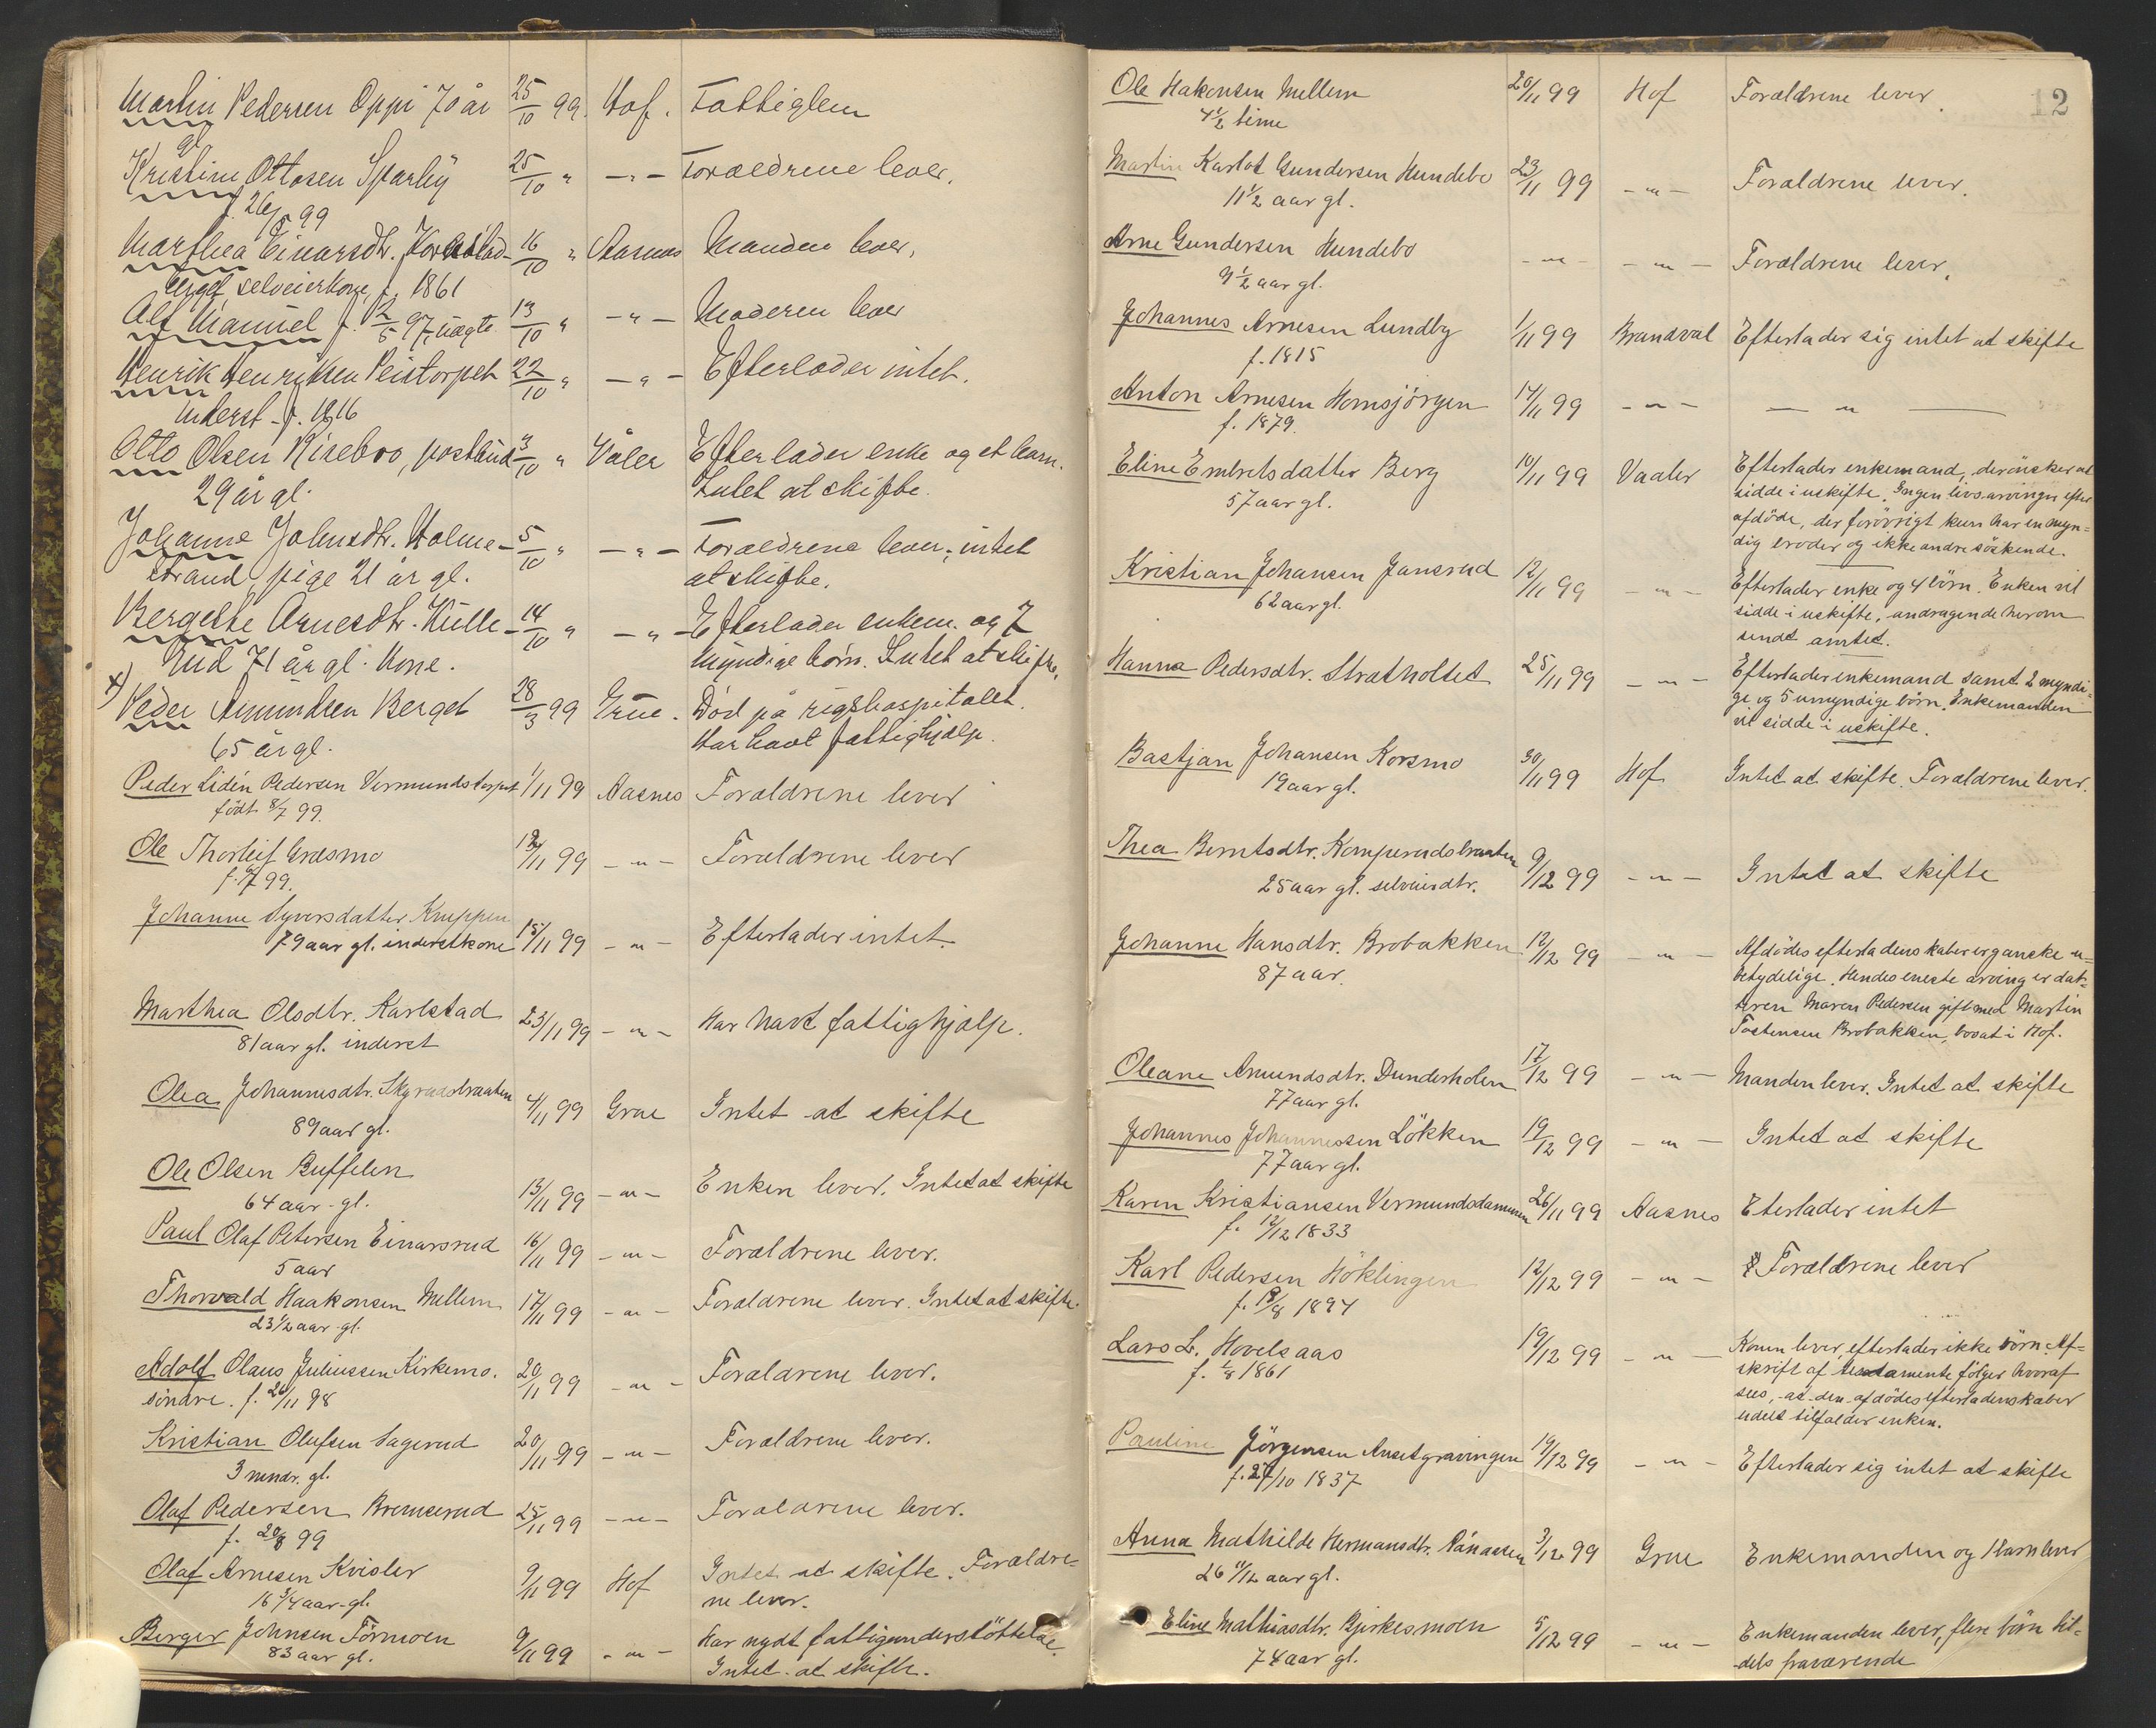 Martin Pedersen Oppi 70 år 25/10 99. Hof. Fattiglem
gl
Kristine Ottosen Sparby 25/10 " -"- Forældrene lever.
f. 26/5 99
Marthea Einarsdtr. 16/10 " Aasnes Manden lever.
selveierkone, f. 1861
Alf Manuel f. 12/5 97, uægte 13/10 " -"- Moderen lever
Henrik Henriksen Peistorpet 22/10 " -"- Efterlader intet.
Inderst - f. 1816
Otto Olsen Risebro, postbud 3/10 " Våler Efterlader enke og et barn.
29 år gl. Intet at skifte.
Johanne Johnsdtr. Holme- 5/10 " -"- Forældrene lever; intet
strand pige 21 år gl. at skifte.
Bergethe Arnesdtr. Hulle- 14/10 " -"- Efterlader enkem. og 7
rud 71 år gl. Kone. myndige børn. Intet at skifte.
x) Peder Amundsen Berget 28/3 99 Grue. Død på rigshospitalet.
65 år gl. Har havt fattighjælp.
Peder Lidén Pedersen Vermundstorpet 1/11 99 Aasnes Forældrene lever
født 8/7 99.
Ole Thorleif Græsmo 12/11 99 -"- Forældrene lever
f. 99.
Johanne Syversdatter Knappen
79 aar gl. inderstkone 15/11 99 -"- Efterlader intet.
Marthea Olsdtr. Karlstad 23/11 99 -"- Har havt fattighjælp.
81 aar gl. inderst
Olea Johannesdtr. Skyrudsbraaten 4/11 99 Grue Intet at skifte
89 aar gl.
Ole Olsen Buffelen 13/11 99 -"- Enken lever. Intet at skifte
64 aar gl.
Paul Olaf Petersen Einarsrud 16/11 99 -"- Forældrene lever.
5 aar
Thorvald Haakonsen Mellem 17/11 99 -"- Forældrene lever. Intet at skifte.
23 1/2 aar gl.
Adolf Olaus Juliussen Kirkemo. 20/11 99 -"- Forældrene lever.
söndre. f. 20/11 98
Kristian Olufsen Sagerud 20/11 99 -"- Forældrene lever.
3 mndr. gl.
Olaf Pedersen Bremserud 25/11 99 -"- Forældrene lever.
f. 20/8 99
Olaf Arnesen Kvisler 9/11 99 Hof Intet at skifte. Forældre-
16 3/4 aar gl. ne lever.
Berger Johnsen Törmoen 9/11 99 -"- Har nydt fattigunderstöttelse.
83 aar gl. Intet at skifte.
12
Ole Hakonsen Mellem 20/11 99 Hof Forældrene lever.
4 1/2 time
Martin Karlot Gundersen Hundebo 23/11 99 -"- Forældrene lever.
11 1/2 aar gl.
Arne Gundersen Hundebo -"- -"- Forældrene lever.
9 1/2 aar gl.
Johannes Arnesen Lundby 1/11 99 Brandval Efterlader sig intet at skifte
f. 1815
Anton Arnesen Homsjörgen 14/11 99 -"- -"-
f. 1879.
Eline Embretsdatter Berg 10/11 99 Vaaler Efterlader enkemand, der önsker at
57 aar gl. sidde i uskifte. Ingen livsarvinger efter
afdöde, der forövrigt kun har en myn-
dig broder og ikke andre söskende.
Kristian Johansen Jansrud 12/11 99 -"- Efterlader enke og 4 börn. Enken vil
62 aar gl. sidde i uskifte, andragende herom
sendt amtet.
Hanna Pedersdtr. Stratholtet 25/11 99 -"- Efterlader enkemand samt 2 myndi-
ge og 5 umyndige börn. Enkemanden
vil sidde i uskifte.
Bastjan Johansen Korsmo 30/11 99 Hof Intet at skifte. Forældrene lever.
19 aar gl.
Thea Berntsdtr. Kamperudsbraaten 9/12 99 -"- Intet at skifte
25 aar gl. selveierdtr.
Johanne Hansdtr. Brobakken 12/12 99 -"- Afdödes efterladenskaber er ganske u-
87 aar. betydelige. Hendes eneste arving er dat-
teren Maren Pedersen gift med Martin
Tostensen Brobakken, bosat i Hof.
Oleane Amundsdtr. Dunderholen 17/12 99 -"- Manden lever. Intet at skifte
77 aar gl.
Johannes Johannessen Lökken 19/12 99 -"- Intet at skifte
77 aar gl.
Karen Kristiansen Vermundsdammen 26/11 99 Aasnes Eterlader intet
f. 12/12 1833
Karl Pedersen Höklingen 12/12 99 -"- Forældrene lever
f. 18/8 1894
Lars L. Hovelsaas 19/12 99 -"- Konen lever, efterlader ikke börn. Af-
f. 1/8 1861 skrift af testamente fölger hvoraf
sees, at den afdödes efterladenskaber
udelt tilfalder enken.
Pauline Jörgensen Ansetgravingen 19/12 99 -"- Efterlader sig intet at skifte
f. 27/10 1837
Anna Mathilde Hermansdtr. Pånaasen 3/12 99 Grue Enkemanden og 1 barn lever
26 11/12 aar gl.
Eline Mathiasdtr. Bjirkesmoen 5/12 99 -"- Enkemanden lever, flere börn til-
74 aar gl. dels fraværende